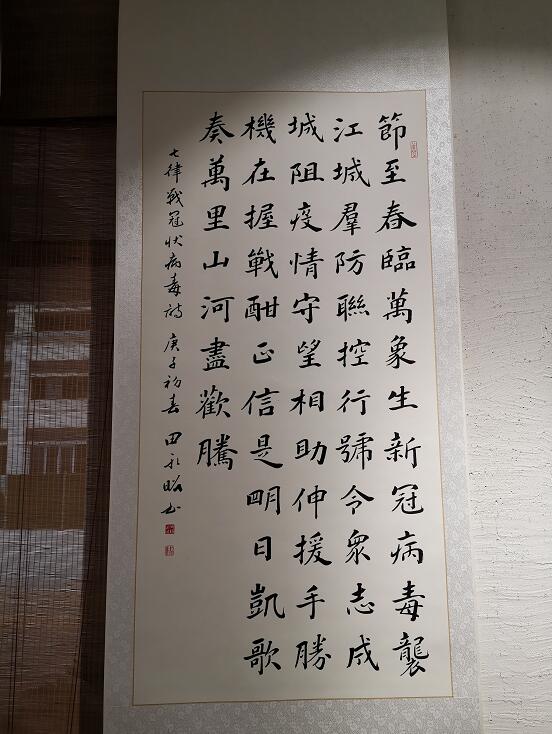 節至春臨萬象生新冠病毒襲
江城羣防聯控行號令衆志成
城阻疫情守望相助仲援手勝
機在握戰酣正信是明日凱歌
奏萬里山河盡歡騰
七律戰冠狀病毒詩 庚子初春 田永昭书